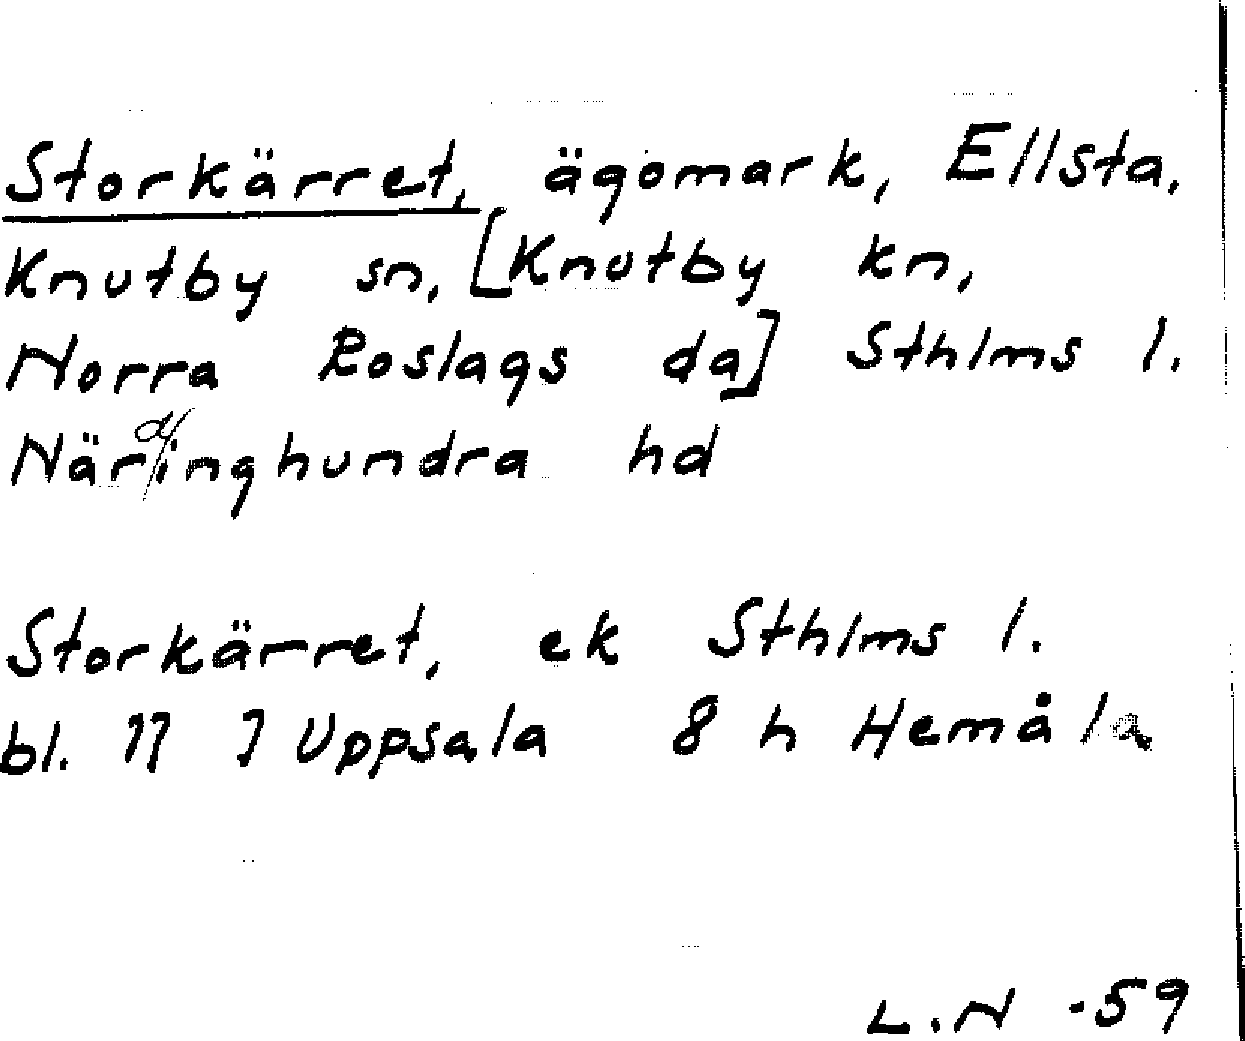 Storkärret, ägomark, Ellsta,
Knutby sn, [Knutby kn,
Norra Roslags da] Sthlms l.
Närdinghundra hd

Storkärret, ek Sthlms l.
bl. 11 I Uppsala 8 h Hemåla
L.N -59